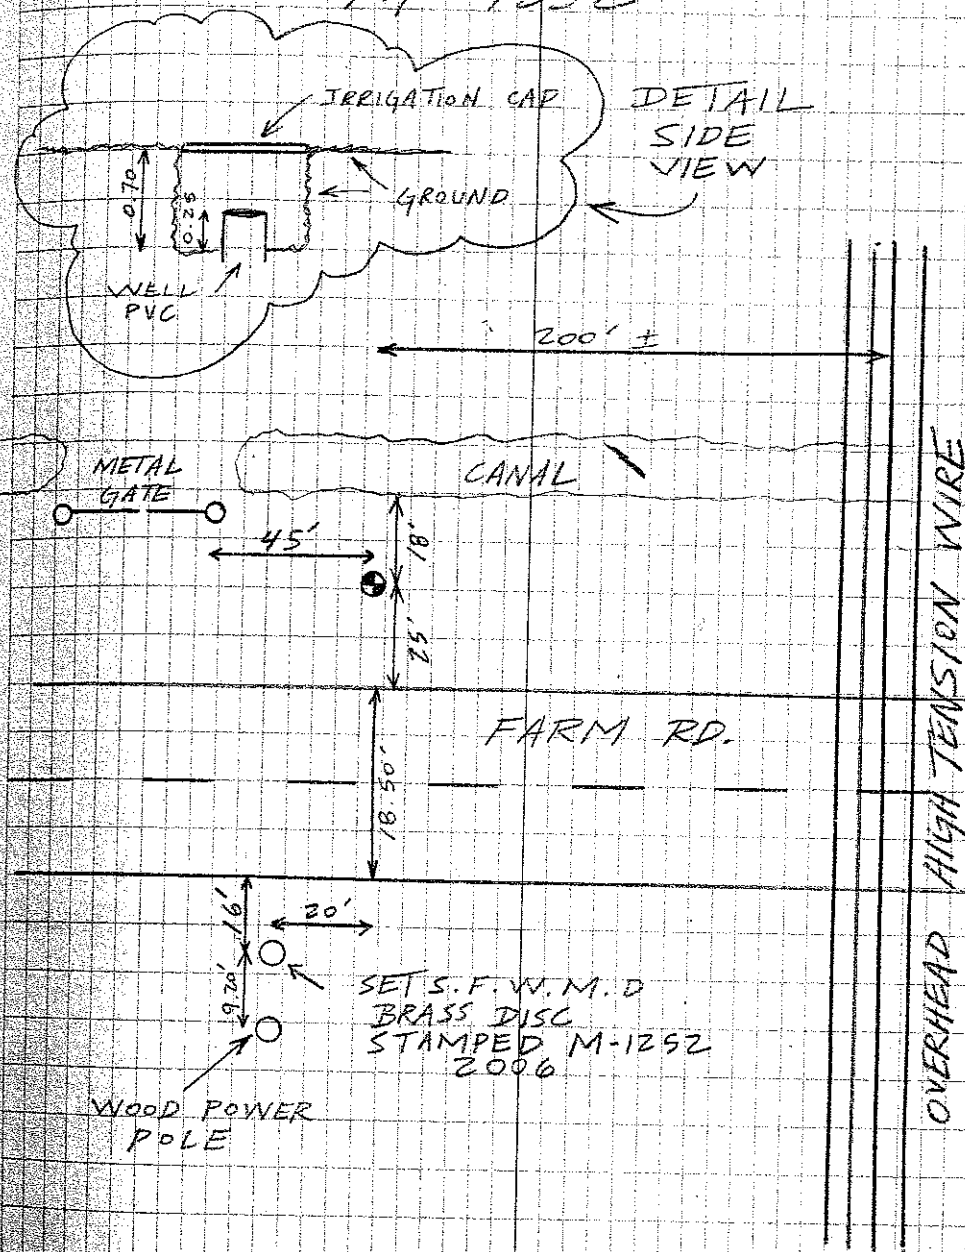 IRRIGATION CAP
DETAIL
SIDE
VIEW
0.70
0.25
GROUND
WELL
PVC
200' ±
METAL
GATE
CANAL
45'
18'
25'
FARM RD.
18.50'
16'
20'
9.20'
SET S.F.W.M.D
BRASS DISC
STAMPED M-1252
2006
WOOD POWER
POLE
OVERHEAD HIGH TENSION WIRE